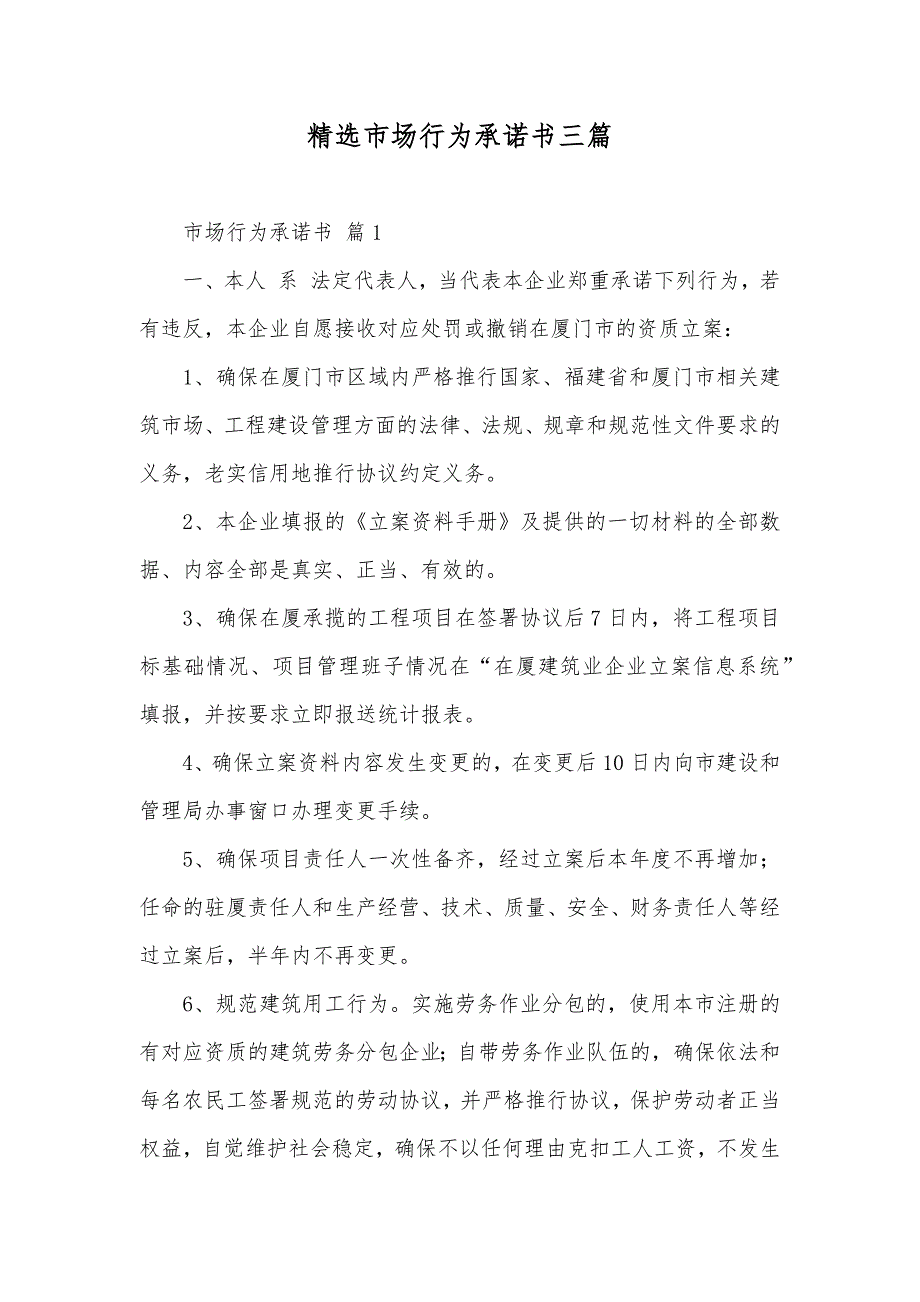 精选市场行为承诺书三篇
市场行为承诺书 篇1
一、本人 系 法定代表人，当代表本企业郑重承诺下列行为，若
有违反，本企业自愿接收对应处罚或撤销在厦门市的资质立案：
1、确保在厦门市区域内严格推行国家、福建省和厦门市相关建
筑市场、工程建设管理方面的法律、法规、规章和规范性文件要求的
义务，老实信用地推行协议约定义务。
2、本企业填报的《立案资料手册》及提供的一切材料的全部数
据、内容全部是真实、正当、有效的。
3、确保在厦承揽的工程项目在签署协议后7日内，将工程项目
标基础情况、项目管理班子情况在“在厦建筑业企业立案信息系统”
填报，并按要求立即报送统计报表。
4、确保立案资料内容发生变更的，在变更后10日内向市建设和
管理局办事窗口办理变更手续。
5、确保项目责任人一次性备齐，经过立案后本年度不再增加；
任命的驻厦责任人和生产经营、技术、质量、安全、财务责任人等经
过立案后，半年内不再变更。
6、规范建筑用工行为。实施劳务作业分包的，使用本市注册的
有对应资质的建筑劳务分包企业；自带劳务作业队伍的，确保依法和
每名农民工签署规范的劳动协议，并严格推行协议，保护劳动者正当
权益，自觉维护社会稳定，确保不以任何理由克扣工人工资，不发生